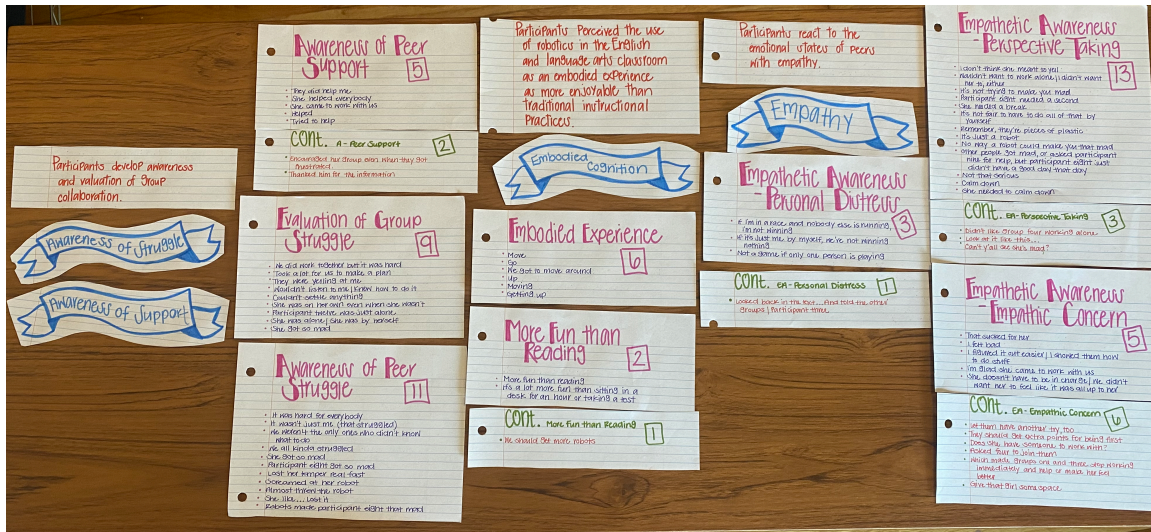 Participants develop awareness
and valuation of Group
collaboration.
Awareness of Struggle
Awareness of Support
Awareness of Peer
Support 5
• They did help me
• She helped everybody
• She came to work with us
• Helped
• Tried to help
CONT. A - Peer Support 2
• Encouraged her group even when they got
frustrated.
• Thanked him for the information
Evaluation of Group
Struggle 9
• We did work together but it was hard
• Took a lot for us to make a plan
• They were yelling at me
• Wouldn't listen to me, I knew how to do it
• Couldn't settle anything
• She was on her own even when she wasn't
• Participant twelve was just alone
• She was alone / She was by herself
• She got so mad
Awareness of Peer
Struggle 11
• It was hard for everybody
• It wasn't just me (that struggled)
• We weren't the only ones who didn't know
what to do
• We all kinda struggled
• She got so mad
• Participant eight got so mad
• Lost her temper real fast
• Screamed at her robot
• Almost threw the robot
• She like... Lost it
• Robots made participant eight that mad
Participants Perceived the use
of robotics in the English
and language arts classroom
as an embodied experience
as more enjoyable than
traditional instructional
Practices.
Embodied
Cognition
Embodied Experience
6
• Move
• Go
• We got to move around
• Up
• Moving
• Getting up
More Fun than
Reading 2
• More fun than reading
• It's a lot more fun than sitting in a
desk for an hour or taking a test
CONT. More Fun than Reading 1
• We should get more robots
Participants react to the
emotional states of peers
with empathy.
Empathy
Empathetic Awareness
- Personal Distress
3
• If I'm in a race and nobody else is running,
I'm not winning
• If it's just me by myself, we're not winning
nothing
• Not a game if only one person is playing
CONT. EA - Personal Distress 1
• Looked back in the text...And told the other
groups / Participant three
Empathetic Awareness
- Perspective Taking
13
• I don't think she meant to yell
• Wouldn't want to work alone, I didn't want
her to, either
• It's not trying to make you mad
• Participant eight needed a second
• She needed a break
• It's not fair to have to do all of that by
yourself
• Remember, they're pieces of plastic
• It's just a robot
• No way a robot could make you that mad
• Other people got mad, or asked participant
nine for help, but participant eight just
didn't have a good day that day
• Not that serious
• Calm down
• She needed to calm down
CONT. EA - Perspective Taking 3
• Didn't like Group four working alone
• Look at it like this...
• Can't y'all see she's mad?
Empathetic Awareness
- Empathic Concern
5
• That sucked for her
• I felt bad
• I figured it out easier, I showed them how
to do stuff
• I'm glad she came to work with us
• She doesn't have to be in charge / We didn't
want her to feel like it was all up to her
CONT. EA - Empathic Concern 6
• Let them have another try, too
• They should get extra points for being first
• Does she have someone to work with?
• Asked four to join them
• Which made groups one and three stop working
immediately and help or make her feel
better
• Give that girl some space